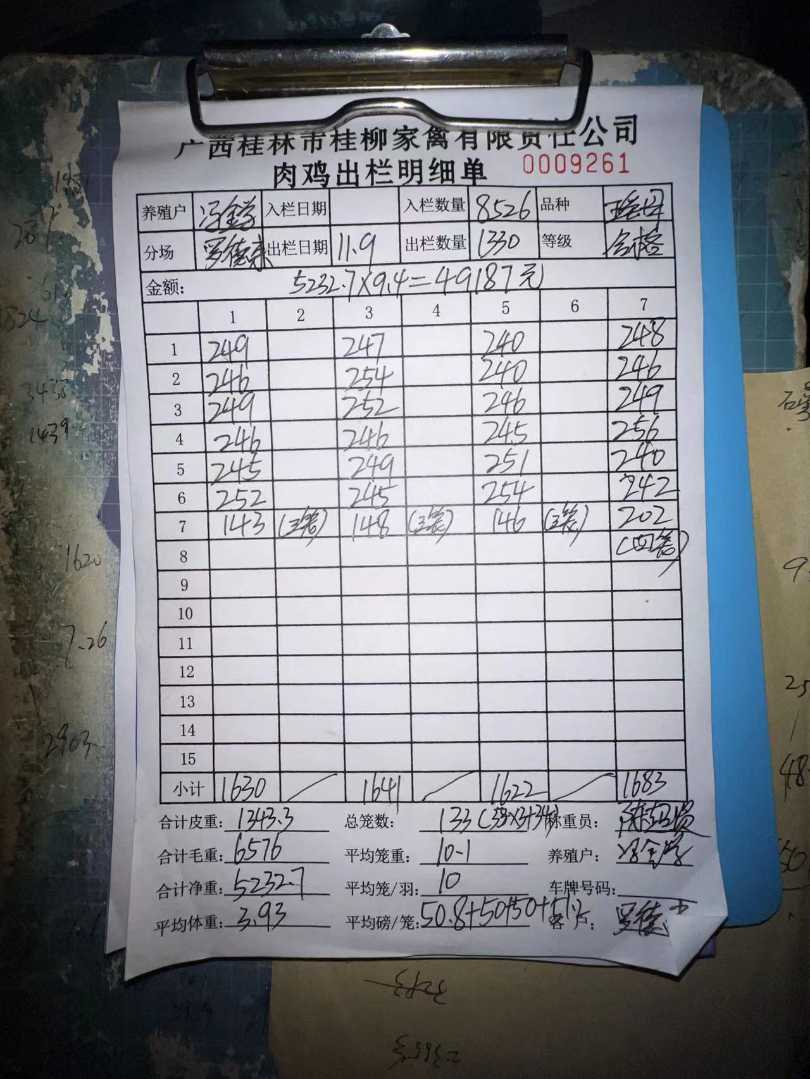 广西桂林市桂柳家禽有限责任公司
肉鸡出栏明细单 0009261
养殖户 冯全学 入栏日期 入栏数量 8526 品种
分场 罗德 出栏日期 11.9 出栏数量 1330 等级 合格
金额: 5232.7×9.4=49187元
1 2 3 4 5 6 7
1 249 247 240 248
2 246 254 240 246
3 249 252 246 249
4 246 246 245 256
5 245 249 251 240
6 252 245 254 242
7 143 (三笼) 148 (三笼) 146 (三笼) 202
8 (四笼)
9
10
11
12
13
14
15
小计 1630 1641 1622 1683
合计皮重: 1343.3 总笼数: 133(33×3+34) 称重员:
合计毛重: 6576 平均笼重: 10-1 养殖户: 冯全学
合计净重: 5232.7 平均笼/羽: 10 车牌号码:
平均体重: 3.93 平均磅/笼: 50.8+50+50+51 客户: 罗德
1439
1620
7.26
2903